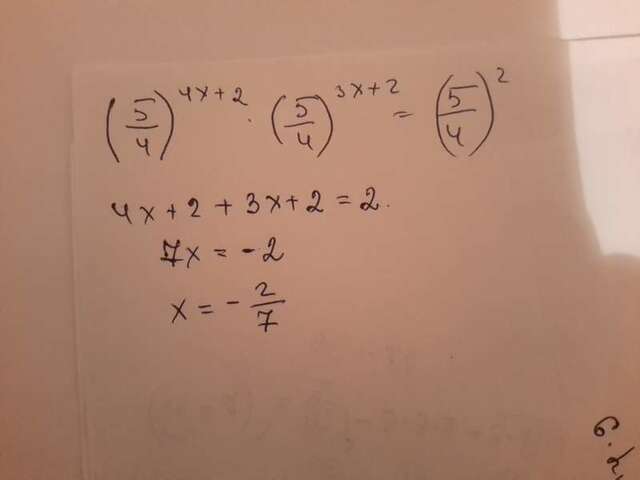 (5/4)^(4x+2) · (5/4)^(3x+2) = (5/4)^2
4x + 2 + 3x + 2 = 2.
7x = -2
x = - 2/7